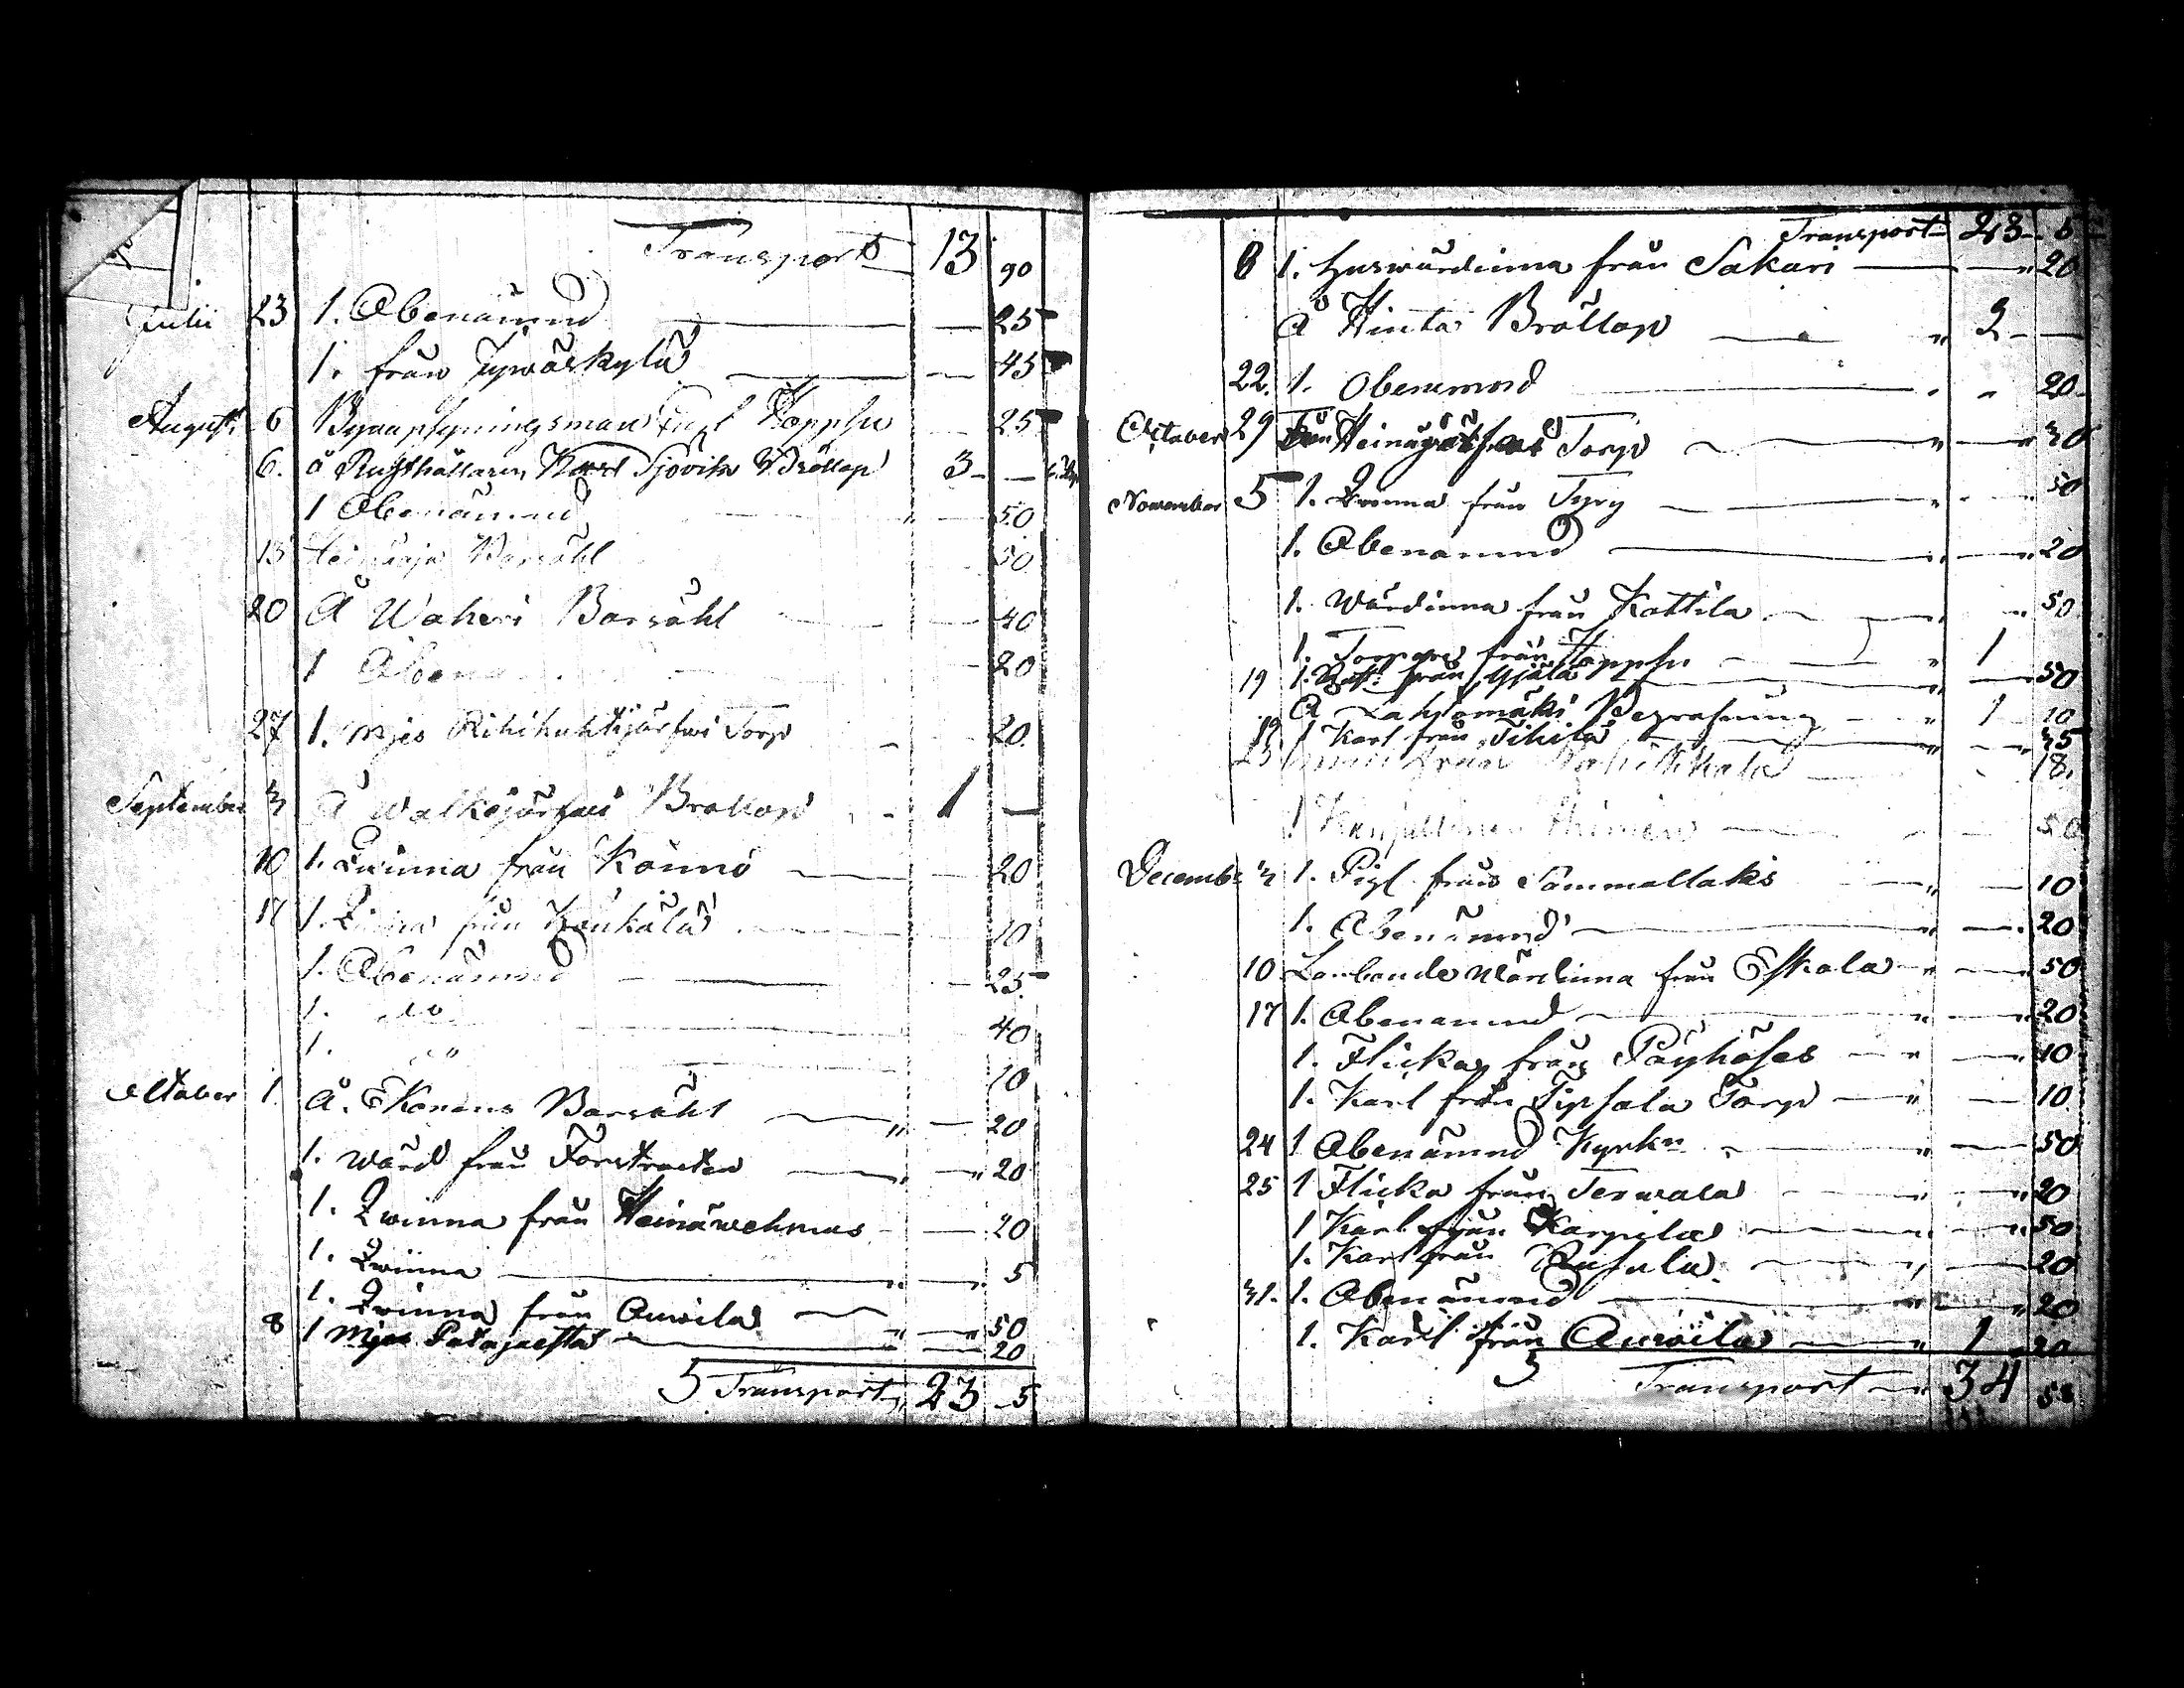 Transport 13 90
Julii 23 1. Obenämnd — 25
1. från Jywäskylä — 45
August 6 Koppsu 25
6. å Rusthållaren Karl Sjövik Bröllop 3 —
1 Obenämnd 50
13 Heinoja Barsöhl 50
20 Å Waheri Barsöhl 40
1 Oben 20
27 1. Mjes Rihikuhtijärfwi Torp 20
September 3 Å Walkejärfwi Bröllop 1 —
10 1. Qwinna från Könnö 20
17 1. Qwinna från Kaukola 10
1. Obenämnd 25
1. do 40
1. " 10
October 1 Å. Ekonens Barsöhl 20
1. Wärd från Torstracten 20
1. Qwinna från Heinäwehmas 20
1. Qwinna 5
1. Qwinna från Auwila 50
8 1 Mjes Patajaesta 20
Transport 23 5
Transport 23 5
8 1. Huswärdinna från Sakari 20
Å Hinta Bröllop 2 —
22. 1. Obenämnd 20
October 29 Från Torp 30
November 5 1. Qwinna från Tyry 50
1. Obenämnd 20
1. Wärdinna från Kottila 50
1. Torpare från Koppsu 1
19 1. från 50
Å Lahtomäki Begrafning 1 10
19 1 Karl från Tihilä 35
25 från 18
1 50
Decemb: 3 1. Pigl från Sammallaks 10
1. Obenämnd 20
10 Lanbonde Wärdinna från Eskola 50
17 1. Obenämnd 20
1. Flicka från Päyhöses 10
1. Karl från Torp 10
24 1 Obenämnd Kyrkn 50
25 1 Flicka från Terwala 20
1 Karl från Karpila 50
1. Karl från 20
31. 1. Obenämnd 20
1. Karl från Auwila 1 20
Transport 34 58